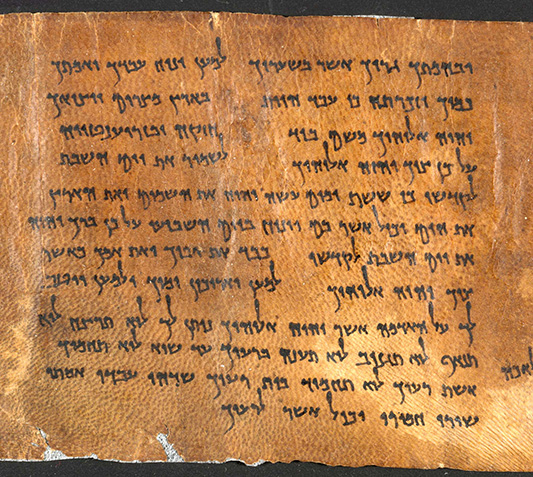 ובהמתך גריך אשר בשעריך למען ינוח עבדך ואמתך
כמוך וזכרתה כי עבד היית בארץ מצרים ויציאך
יהוה אלוהיך משם ביד חזקה ובזרוע נטויה
על כן צוך יהוה אלוהיך לשמור את יום השבת
לקדשו כי ששת ימים עשה יהוה את השמים ואת הארץ
את הים וכול אשר בם וינוח ביום השביעי על כן ברך יהוה
את יום השבת לקדשו כבד את אביך ואת אמך כאשר
צוך יהוה אלוהיך למען יאריכון ימיך ולמען ייטב
לך על האדמה אשר יהוה אלוהיך נותן לך לוא תרצח לוא
תנאף לוא תגנוב לוא תענה ברעיך עד שוא לוא תחמוד
אשת רעיך לוא תחמוד בית רעיך שדהו עבדו אמתו
שורו חמורו וכול אשר לרעיך